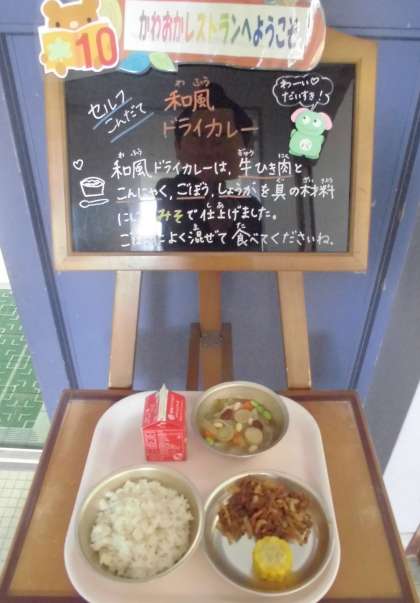 10
かわおかレストランへようこそ
セルフ
こんだて
わふう
和風
ドライカレー
わーい♡
だいすき!
わふう ぎゅう にく
和風ドライカレーは、牛ひき肉と
ぐ ざいりょう
こんにゃく、ごぼう、しょうがを具の材料
に みそで仕上げました。
ま た
よく混ぜて食べてくださいね。